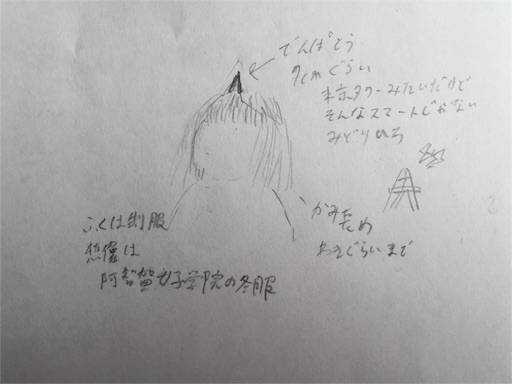 でんぱとう
7cmぐらい
東京タワーみたいだけど
そんなスマートじゃない
みどりいろ
ふくは制服
想像は
阿智賀女子学院の冬服
かみ
ぐらいまで